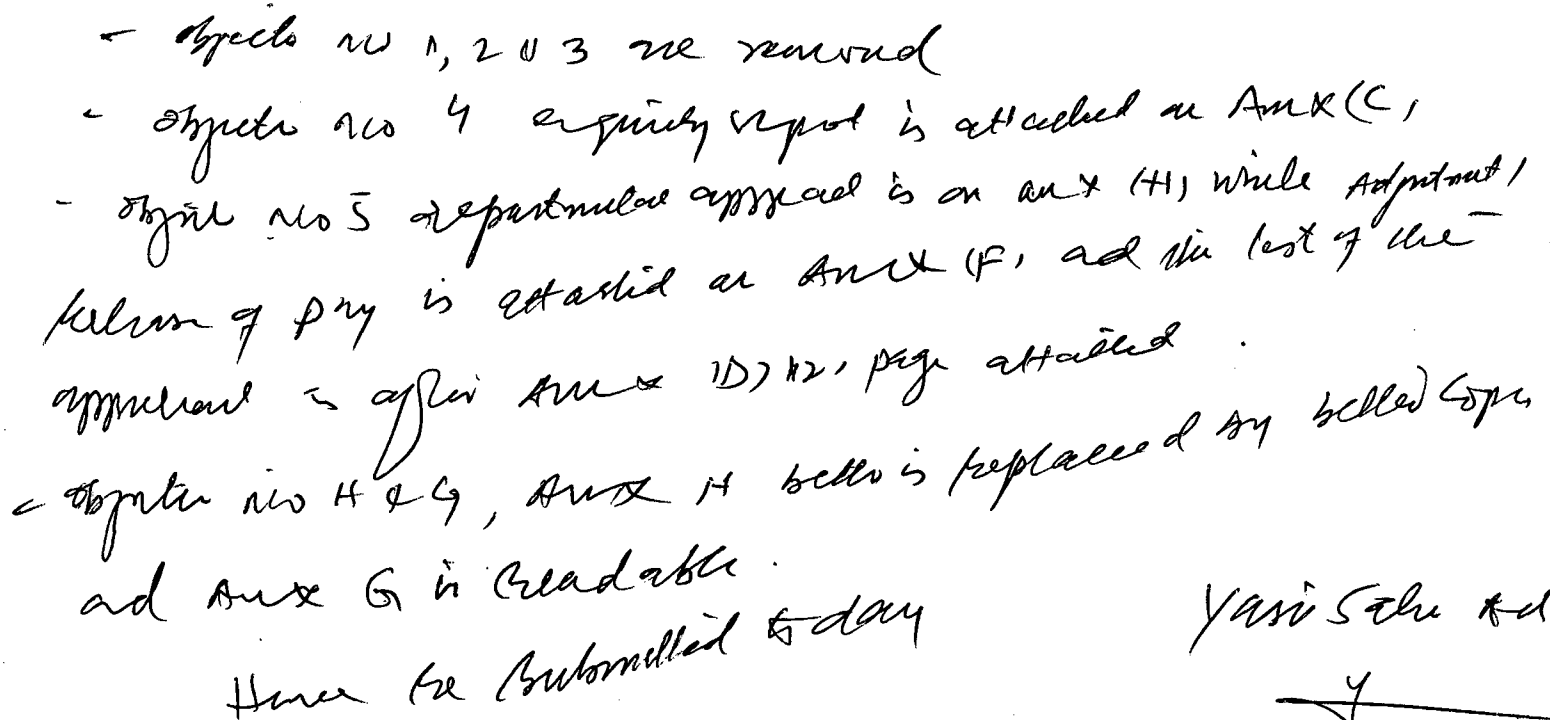 - Objects no 1, 2 & 3 are removed
- Objectn no 4 enquiry report is attached as Anx (C)
- Objtn no 5 departmental appeal is on anx (H) while Adjustment /
release of pay is attached as Annex (F) and the last of the
appellant is after Annex (D) page attached.
- Objectn no H & G, Anx H better is replaced by better copy
and Anx G is Readable.
Hence Re Submitted today
Yasir Ad